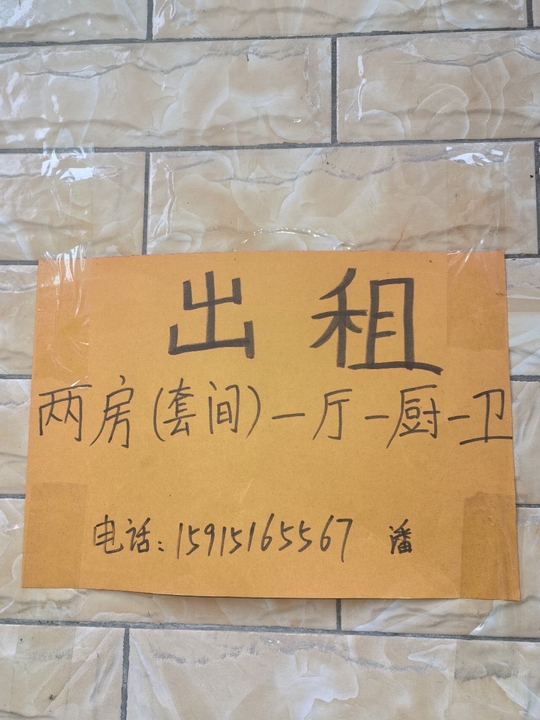 出租
两房(套间)一厅一厨一卫
电话:15915165567 潘